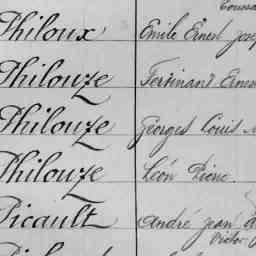 Philoux Emile Ernest
Philouze Ferdinand Ernest
Philouze Georges Louis
Philouze Léon Pierre.
Picault André Jean
Victor